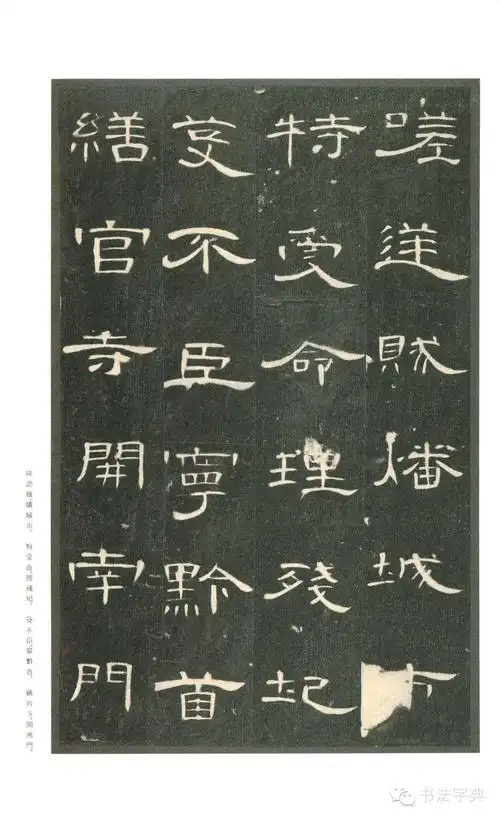 嗟逆賊燔城市
特受命理殘圮
芟不臣寧黔首
繕官寺開南門
嗟逆賊燔城市。特受命理殘圮。芟不臣寧黔首。繕官寺開南門。
书法字典